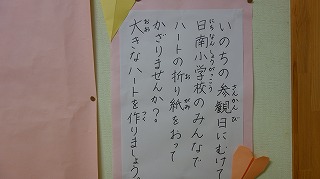 いのちの参観日にむけて
日南小学校のみんなで
ハートの折り紙をおって
かざりませんか?
大きなハートを作りましょう。